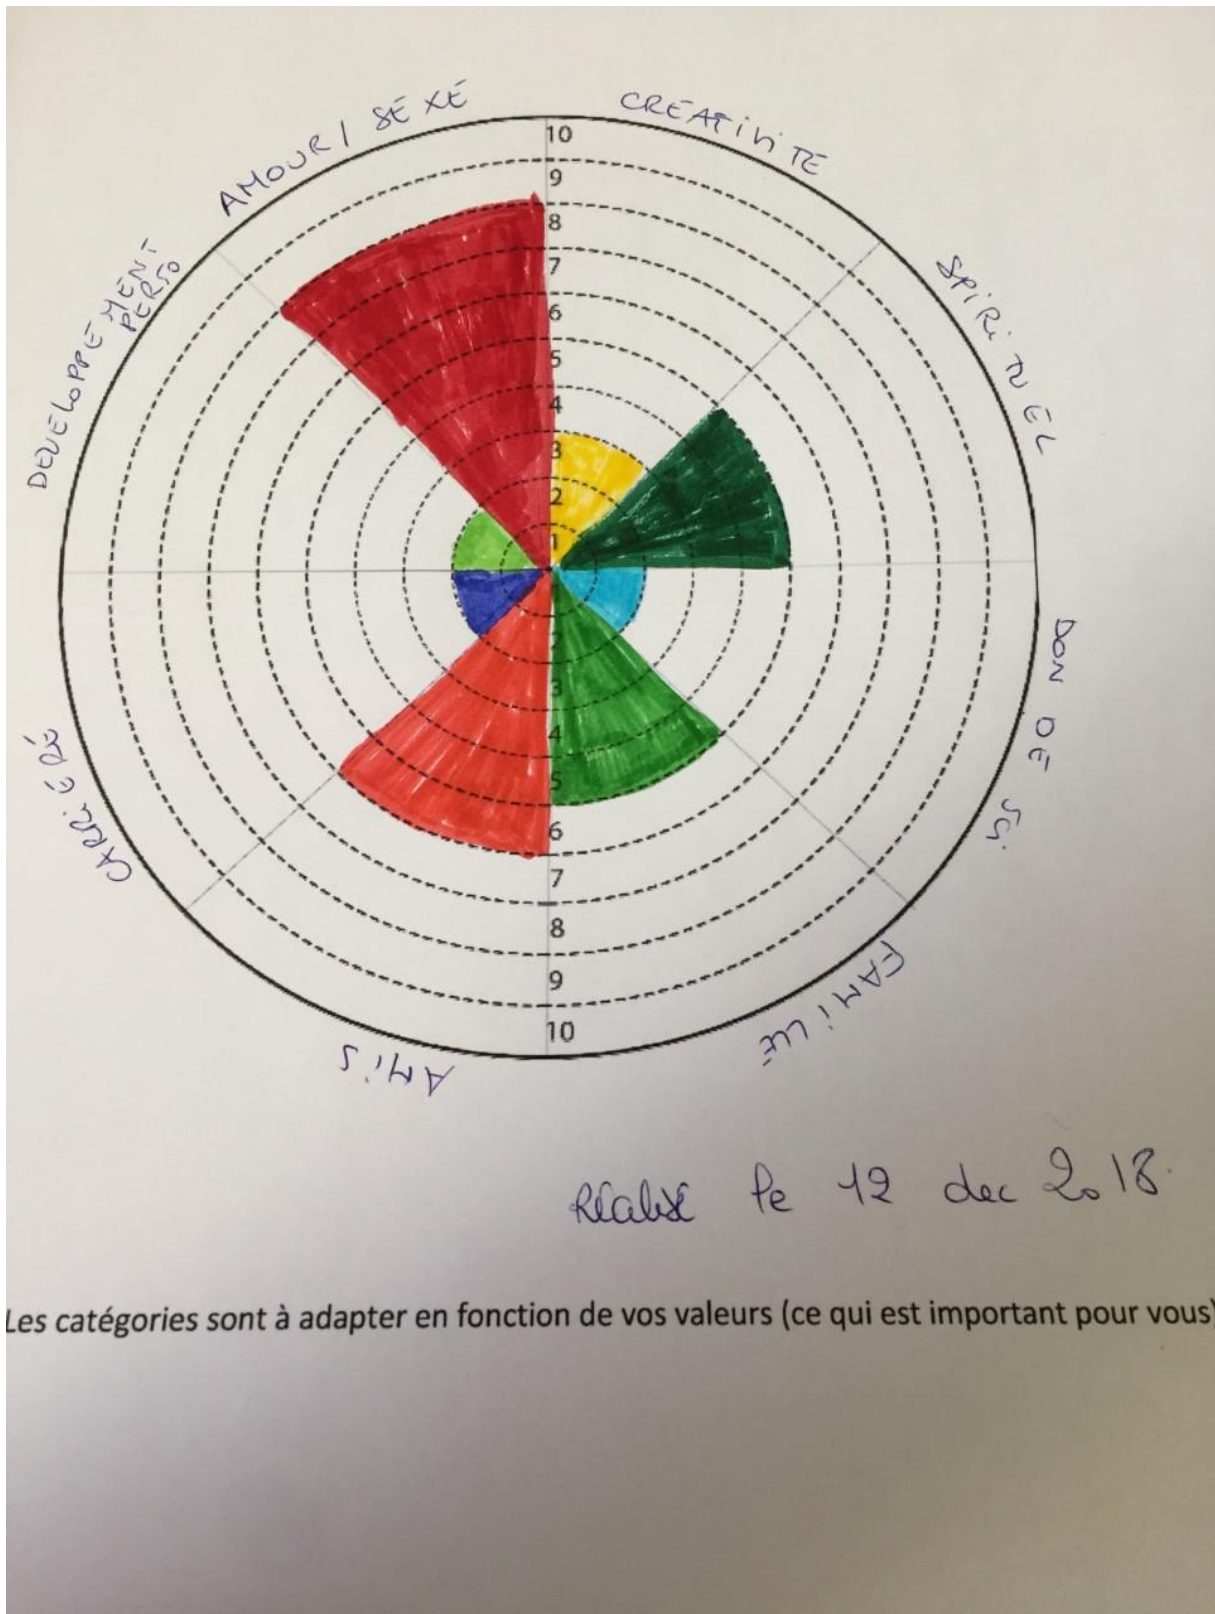 AMOUR / SEXE
CREATIVITE
SPIRITUEL
DON DE SOI
FAMILLE
AMIS
CARRIERE
DEVELOPPEMENT
PERSO
10
9
8
7
6
5
4
3
2
1
1
2
3
4
5
6
7
8
9
10
Réalisé le 12 dec 2018.
Les catégories sont à adapter en fonction de vos valeurs (ce qui est important pour vous)